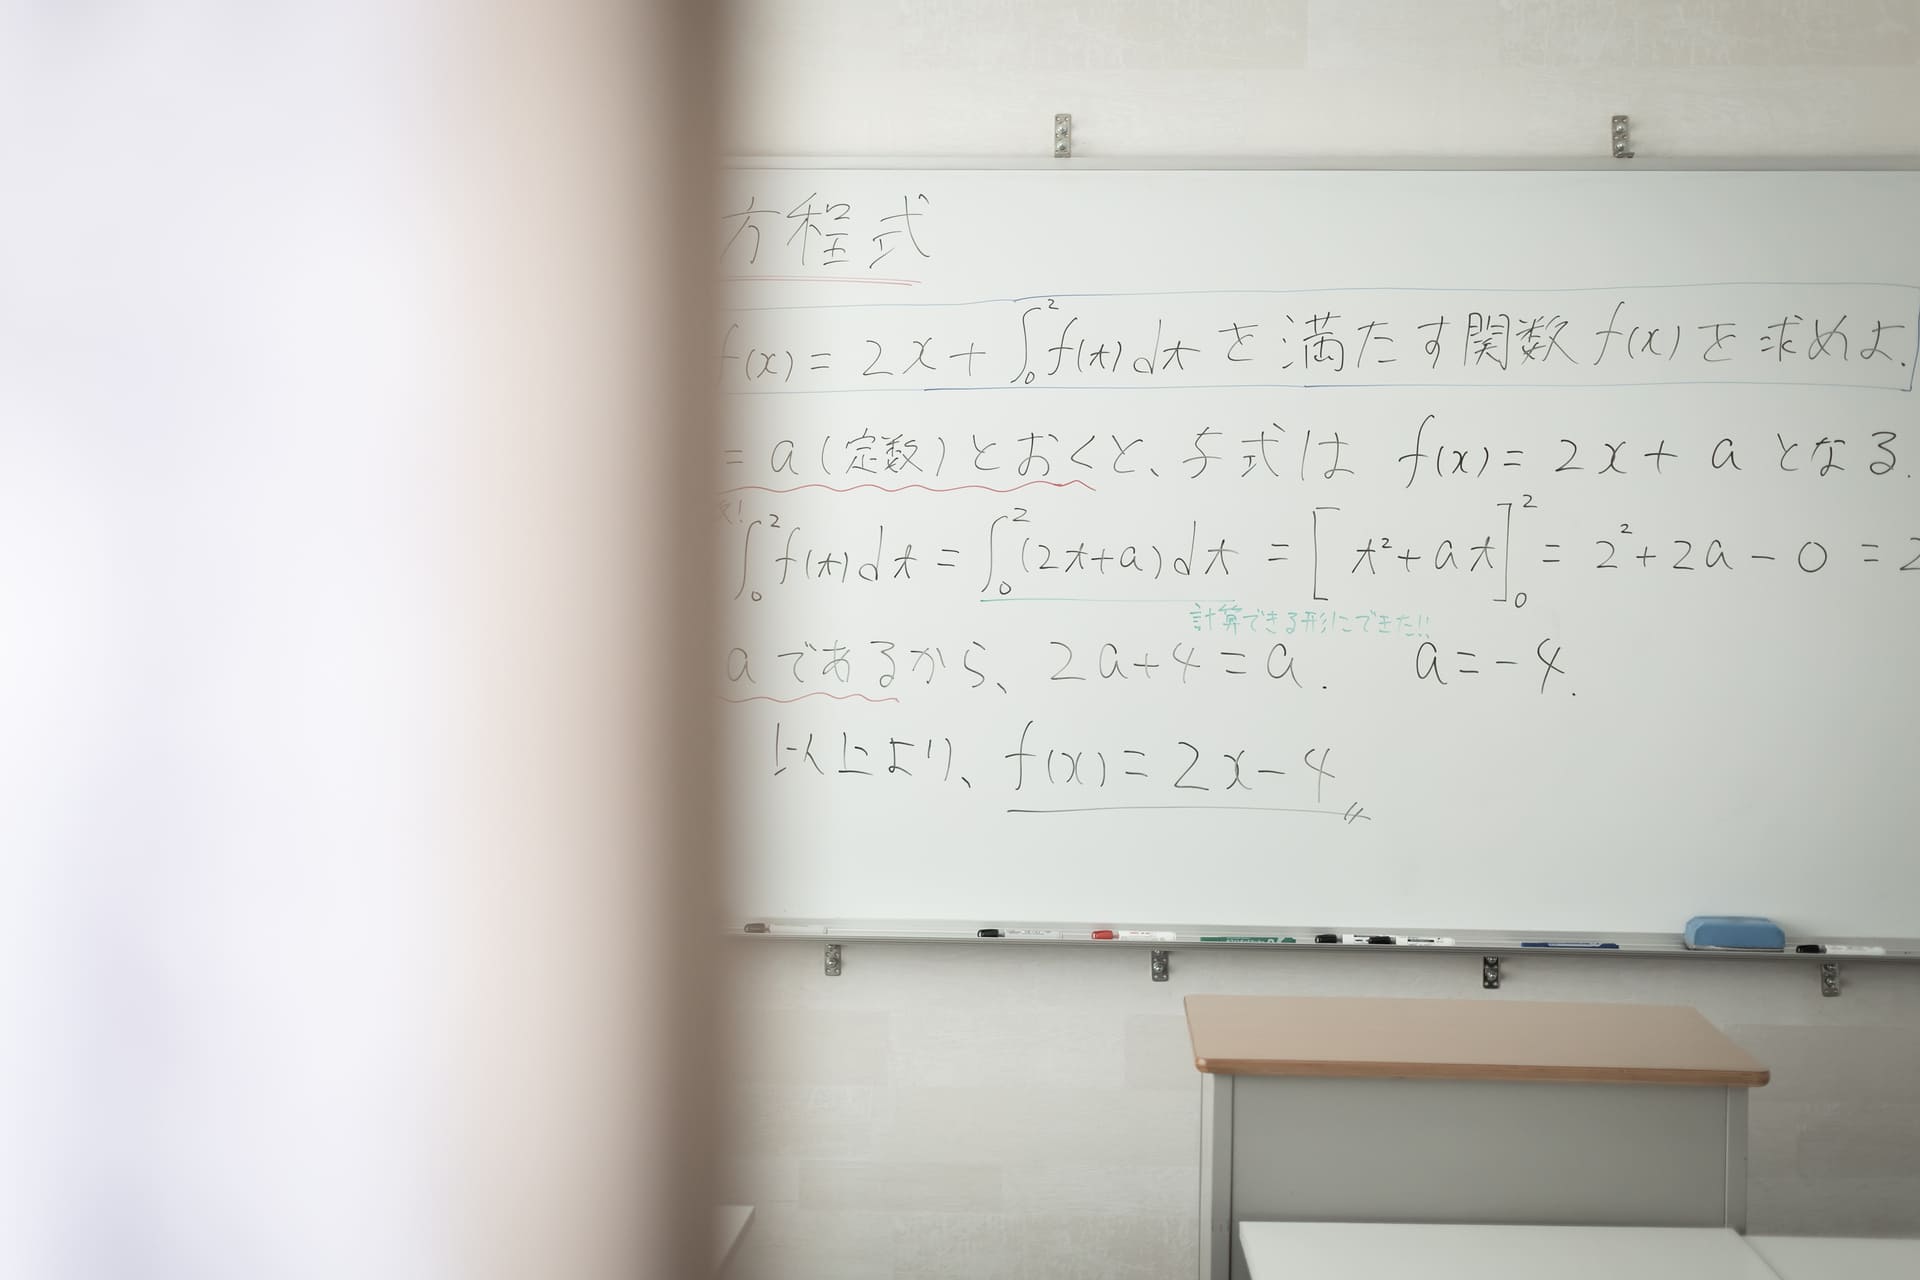 方程式
f(x) = 2x + ∫₀² f(t)dt を満たす関数 f(x) を求めよ.
= a (定数) とおくと、与式は f(x) = 2x + a となる.
∫₀² f(t)dt = ∫₀² (2t+a)dt = [t²+at]₀² = 2²+2a-0 = 2
計算できる形にできた!!
aであるから、2a+4=a. a=-4.
以上より、f(x)=2x-4